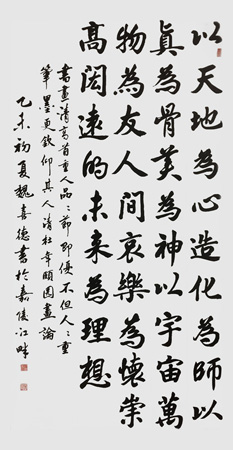 以天地為心造化為師以
眞為骨美為神以宇宙萬
物為友人間哀樂為懷崇
高闊遠的未來為理想
書畫清高首重人品〻節即優不但人〻重
筆墨更欽仰其人清頤園畫論
乙未初夏魏喜德書於嘉陵江畔